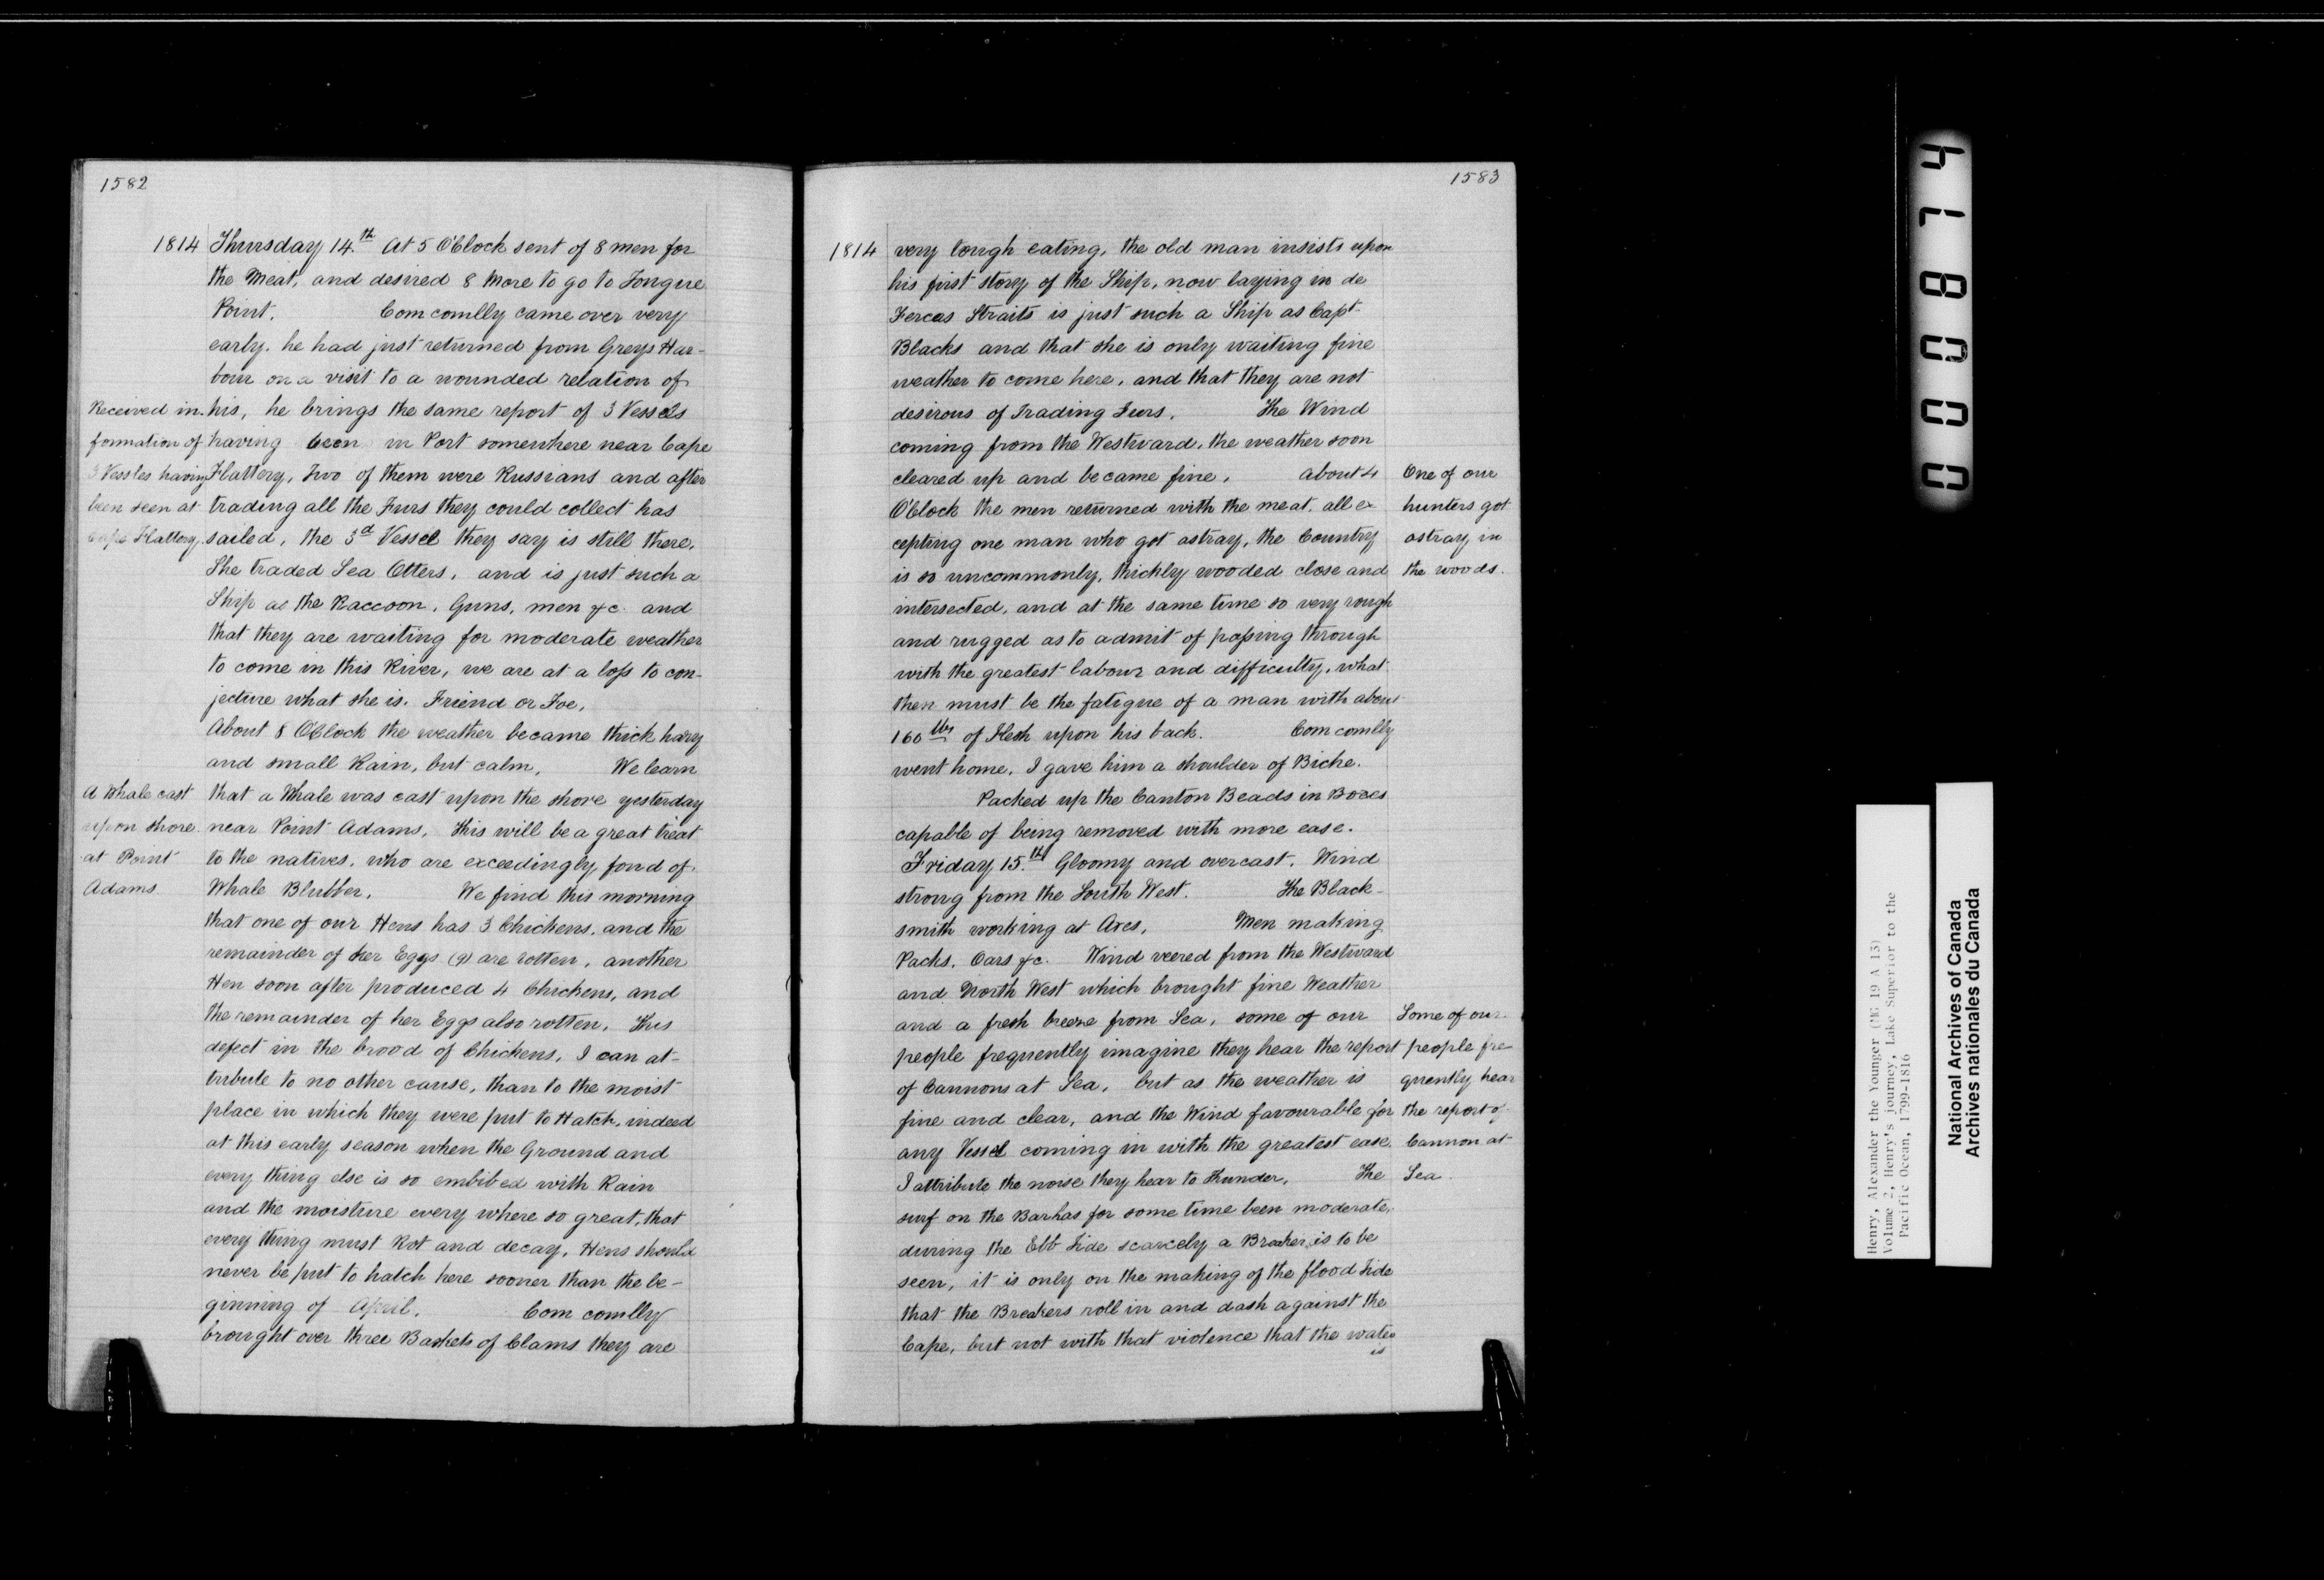 1582
1814 Thursday 14.th At 5 O'Clock sent of 8 men for
the Meat, and desired 8 More to go to Tongue
Point. Com comlly came over very
early. he had just returned from Greys Har-
bour on a visit to a wounded relation of
his, he brings the same report of 3 Vessels
having been in Port somewhere near Cape
Flattery, Two of them were Russians and after
trading all the Furs they could collect has
sailed, the 3d Vessel they say is still there.
She traded Sea Otters, and is just such a
Ship as the Raccoon, Guns, men &c. and
that they are waiting for moderate weather
to come in this River, we are at a loss to con-
jecture what she is. Friend or Foe,
About 8 O'Clock the weather became thick hazy
and small Rain, but calm, We learn
that a Whale was cast upon the shore yesterday
near Point Adams, This will be a great treat
to the natives, who are exceedingly fond of
Whale Blubber, We find this morning
that one of our Hens has 3 Chickens, and the
remainder of her Eggs (9) are rotten, another
Hen soon after produced 4 Chickens, and
the remainder of her Eggs also rotten, This
defect in the brood of Chickens, I can at-
tribute to no other cause, than to the moist
place in which they were put to Hatch, indeed
at this early season when the Ground and
every thing else is so embibed with Rain
and the moisture every where so great, that
every thing must Rot and decay, Hens should
never be put to hatch here sooner than the be-
ginning of April. Com comlly
brought over three Baskets of Clams they are
Received in-
formation of
3 Vessles having
been seen at
Cape Flattery.
A Whale cast
upon shore
at Point
Adams.
1583
1814 very tough eating, the old man insists upon
his first story of the Ship, now laying in de
Fercas Straits is just such a Ship as Capt.
Blacks and that she is only waiting fine
weather to come here, and that they are not
desirous of Trading Furs. The Wind
coming from the Westward, the weather soon
cleared up and became fine, About 4
O'Clock the men returned with the meat, all ex-
cepting one man who got astray, the Country
is so uncommonly, thickly wooded close and
intersected, and at the same time so very rough
and rugged as to admit of passing through
with the greatest labour and difficulty, what
then must be the fatigue of a man with about
160 lbs of Flesh upon his back. Com comlly
went home, I gave him a shoulder of Biche.
Packed up the Canton Beads in Boxes
capable of being removed with more ease.
Friday 15.th Gloomy and overcast. Wind
strong from the South West. The Black-
smith working at Axes, Men making
Packs. Oars &c. Wind veered from the Westward
and North West which brought fine Weather
and a fresh breeze from Sea, some of our
people frequently imagine they hear the report
of Cannons at Sea, but as the weather is
fine and clear, and the Wind favourable for
any Vessel coming in with the greatest ease
I attribute the noise they hear to Thunder, The
surf on the Bar has for some time been moderate,
during the Ebb Tide scarcely a Breaker is to be
seen, it is only on the making of the flood Tide
that the Breakers roll in and dash against the
Cape, but not with that violence that the water
is
One of our
hunters got
astray in
the woods.
Some of our
people fre-
quently hear
the report of
Cannon at
Sea.
000874
Henry, Alexander the Younger (MG 19 A 13)
Volume 2, Henry's journey, Lake Superior to the
Pacific Ocean, 1799-1816
National Archives of Canada
Archives nationales du Canada